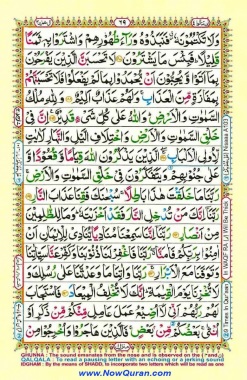 ٦٩
وَلَا تَكْتُمُوْنَهٗ فَنَبَذُوْهُ وَرَآءَ ظُهُوْرِهِمْ وَاشْتَرَوْا بِهٖ ثَمَنًا
قَلِيْلًا فَبِئْسَ مَا يَشْتَرُوْنَ لَا تَحْسَبَنَّ الَّذِيْنَ يَفْرَحُوْنَ
بِمَآ اَتَوْا وَّيُحِبُّوْنَ اَنْ يُّحْمَدُوْا بِمَا لَمْ يَفْعَلُوْا فَلَا تَحْسَبَنَّهُمْ
بِمَفَازَةٍ مِّنَ الْعَذَابِ وَلَهُمْ عَذَابٌ اَلِيْمٌ وَلِلّٰهِ مُلْكُ
السَّمٰوٰتِ وَالْاَرْضِ وَاللّٰهُ عَلٰى كُلِّ شَىْءٍ قَدِيْرٌ اِنَّ فِيْ
خَلْقِ السَّمٰوٰتِ وَالْاَرْضِ وَاخْتِلَافِ الَّيْلِ وَالنَّهَارِ لَاٰيٰتٍ
لِّاُولِى الْاَلْبَابِ الَّذِيْنَ يَذْكُرُوْنَ اللّٰهَ قِيٰمًا وَّقُعُوْدًا وَّ
عَلٰى جُنُوْبِهِمْ وَيَتَفَكَّرُوْنَ فِيْ خَلْقِ السَّمٰوٰتِ وَالْاَرْضِ
رَبَّنَا مَا خَلَقْتَ هٰذَا بَاطِلًا سُبْحٰنَكَ فَقِنَا عَذَابَ النَّارِ
رَبَّنَآ اِنَّكَ مَنْ تُدْخِلِ النَّارَ فَقَدْ اَخْزَيْتَهٗ وَمَا لِلظّٰلِمِيْنَ
مِنْ اَنْصَارٍ رَبَّنَآ اِنَّنَا سَمِعْنَا مُنَادِيًا يُّنَادِيْ لِلْاِيْمَانِ اَنْ
اٰمِنُوْا بِرَبِّكُمْ فَاٰمَنَّا رَبَّنَا فَاغْفِرْ لَنَا ذُنُوْبَنَا وَكَفِّرْ عَنَّا سَيِّاٰتِنَا
وَتَوَفَّنَا مَعَ الْاَبْرَارِ رَبَّنَا وَاٰتِنَا مَا وَعَدْتَّنَا عَلٰى رُسُلِكَ
وَلَا تُخْزِنَا يَوْمَ الْقِيٰمَةِ اِنَّكَ لَا تُخْلِفُ الْمِيْعَادَ فَاسْتَجَابَ
لَهُمْ رَبُّهُمْ اَنِّيْ لَآ اُضِيْعُ عَمَلَ عَامِلٍ مِّنْكُمْ مِّنْ ذَكَرٍ اَوْ
اُنْثٰى بَعْضُكُمْ مِّنْ بَعْضٍ فَالَّذِيْنَ هَاجَرُوْا وَاُخْرِجُوْا مِنْ
GHUNNA : The sound emanates from the nose and is observed on the
QALQALA : To read a pausing letter with an echoing or a jerking sound
IDGHAM : By the means of SHADD, to incorporate two letters which will be read as one
www.NowQuran.com